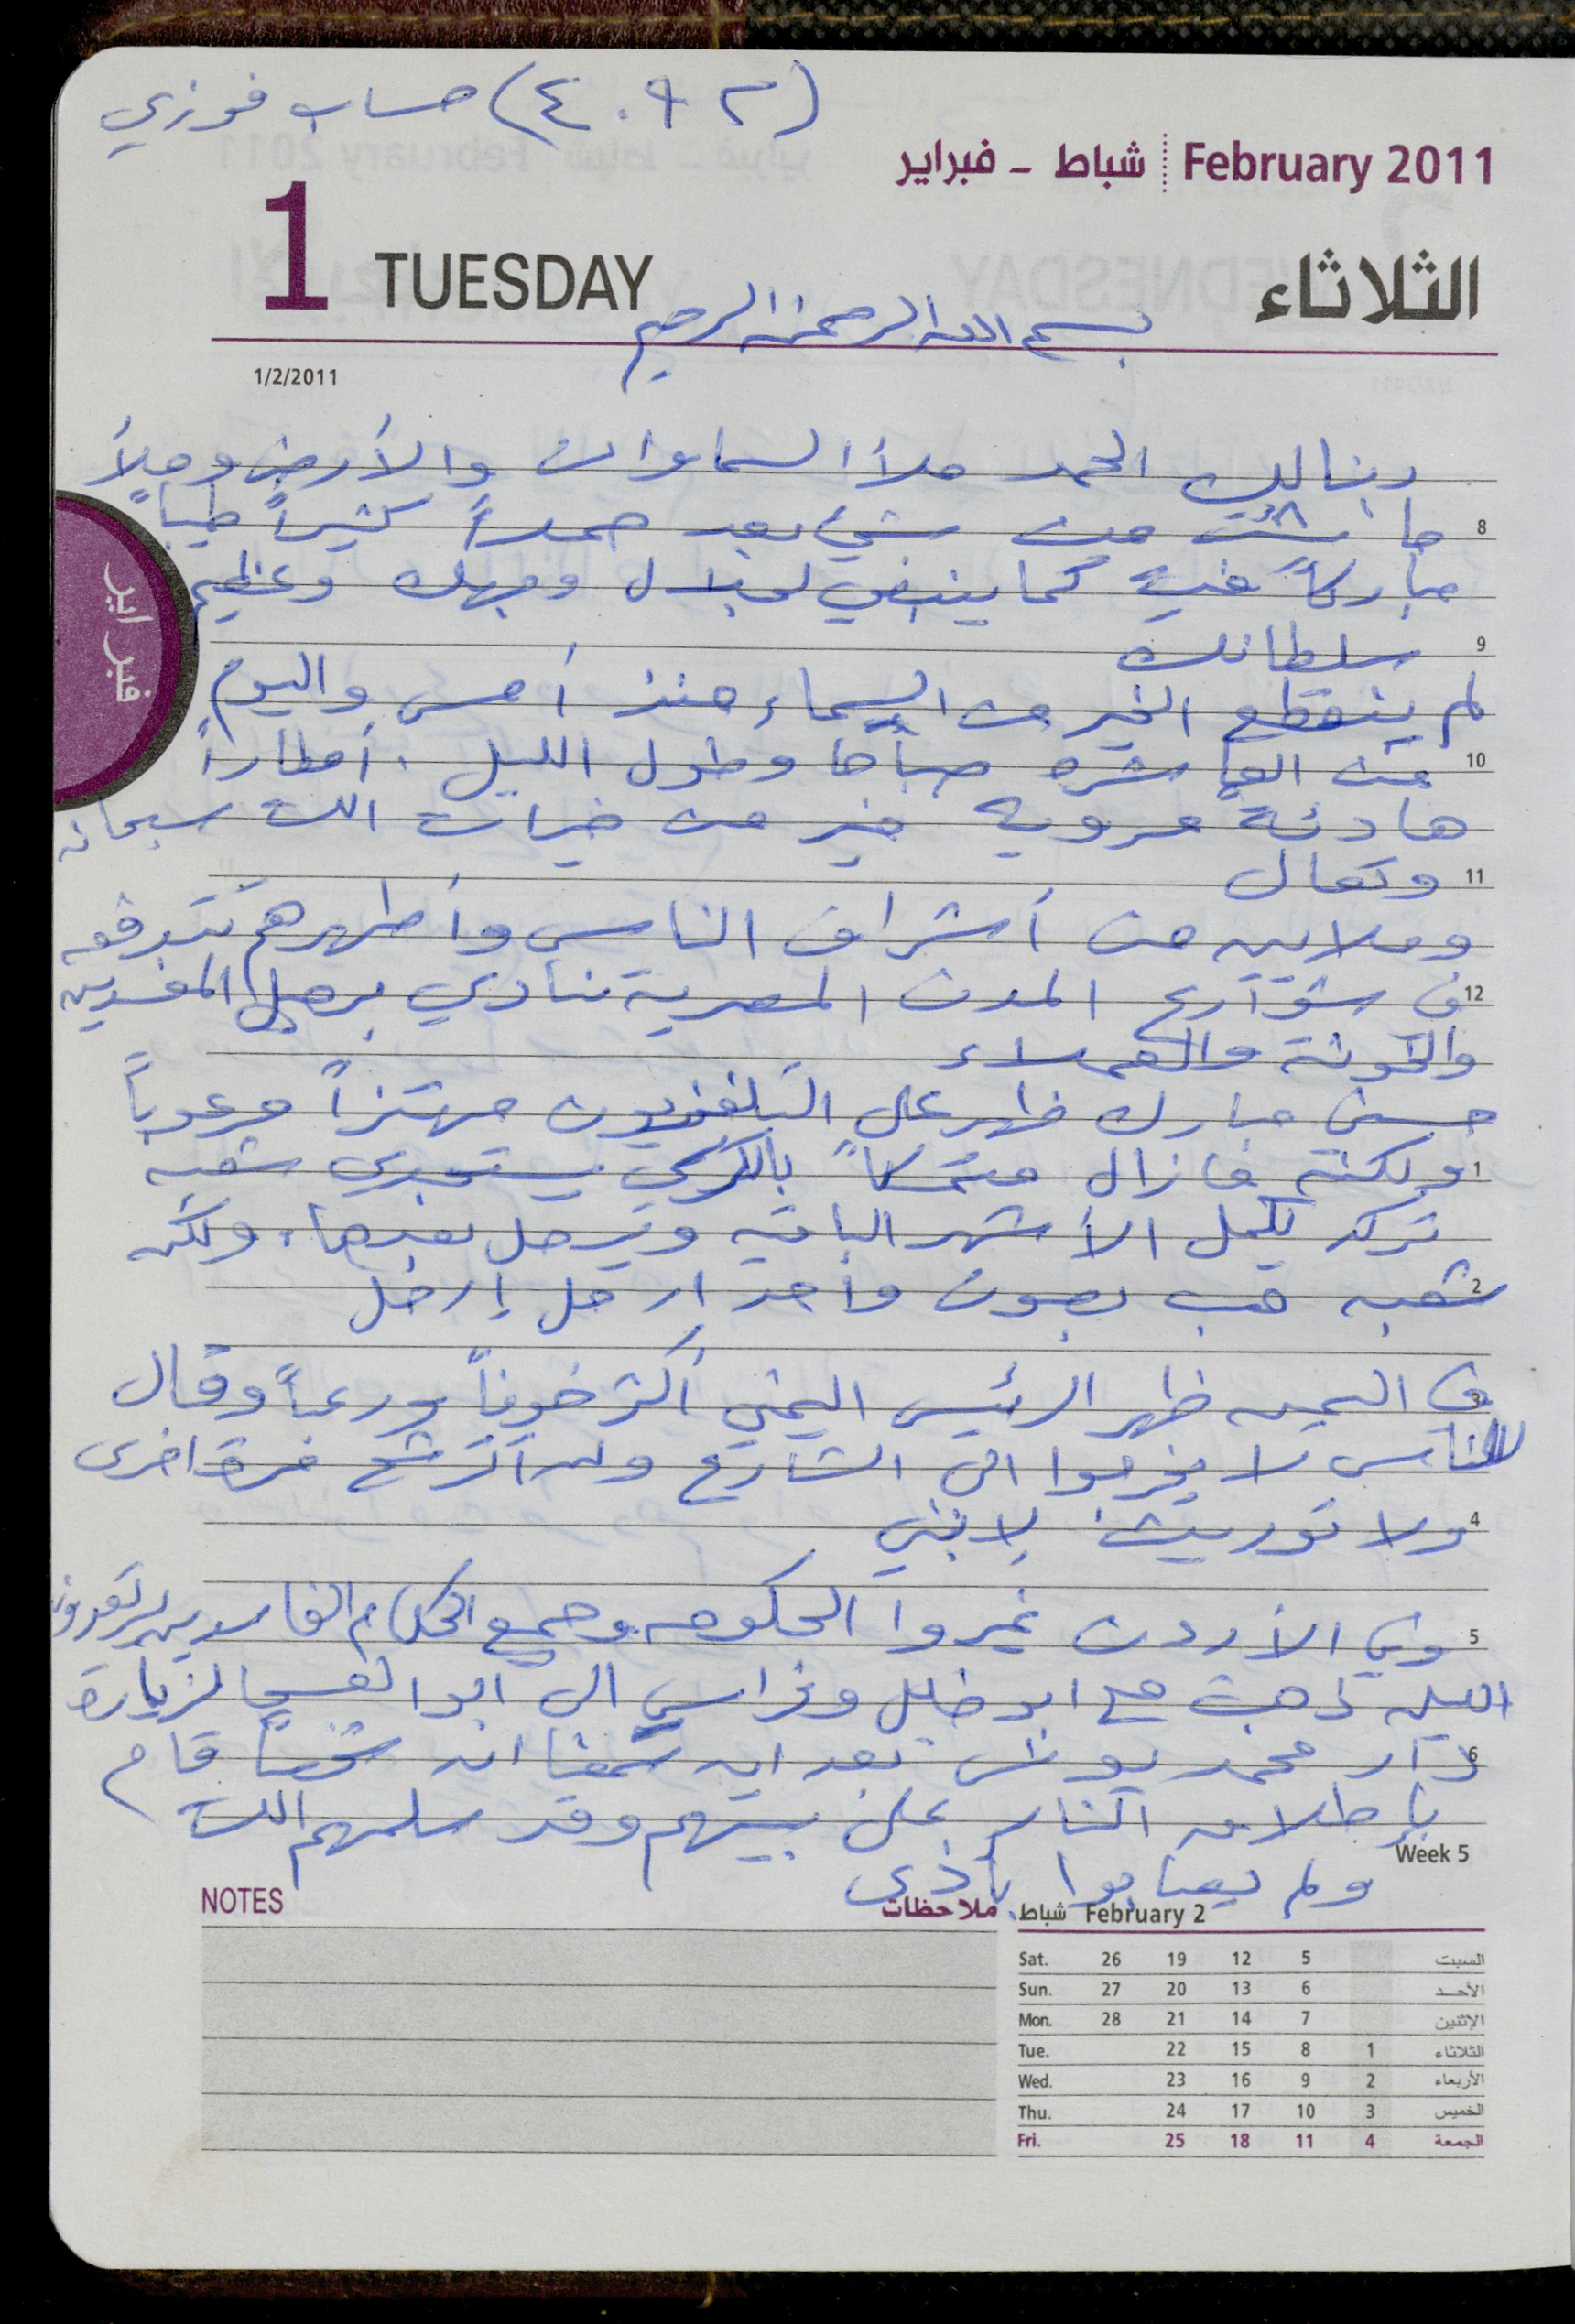 (٤٠٩٢) حساب فوزي
February 2011 شباط - فبراير
1 TUESDAY الثلاثاء
بسم الله الرحمن الرحيم
1/2/2011
ربنا لك الحمد ملأ السماوات والأرض وملأ
8 ما شئت من شيء بعد حمداً كثيراً طيباً
مباركاً فيه كما ينبغي لجلال وجهك وعظيم
9 سلطانك
لم ينقطع الخير من السماء منذ أمس واليوم
10 من العاشره صباحا وطول الليل . أمطاراً
هادئة مرويه خير من خيرات الله سبحانه
11 وتعالى
وملايين من أشراف الناس وأطهرهم تتدفق
12 في شوارع المدن المصرية تنادي برحيل المفسدين
والخونة والعملاء
حسني مبارك ظهر على التلفزيون مهتزاً مرعوباً
1 ولكنه مازال متمسكاً بالكرسي يستجدي شعبه
تركه ليكمل الأشهر الباقيه ويرحل بعدها، ولكن
2 شعبه هب بصوت واحد ارحل إرحل
3 في اليمن ظهر الرئيس اليمني أكثر خوفاً ورعباً وقال
للناس لا تخرجوا الى الشارع ولن اترشح مرة اخرى
4 ولا توريث لابني
5 وفي الأردن غيروا الحكومه وجميع الحكام الفاسدين يرتعدون
الليله ذهبت مع ابو خليل وفراس الى ابو القسيم لزيارة
6 دار محمد يونس بعد ان سمعنا ان شخصاً قام
بإطلاق النار على بيتهم وقد سلمهم الله
ولم يصابوا بأذى
Week 5
NOTES ملاحظات
شباط February 2
Sat. 26 19 12 5 السبت
Sun. 27 20 13 6 الأحـد
Mon. 28 21 14 7 الإثنين
Tue. 22 15 8 1 الثلاثاء
Wed. 23 16 9 2 الأربعاء
Thu. 24 17 10 3 الخميس
Fri. 25 18 11 4 الجمعة
فبراير